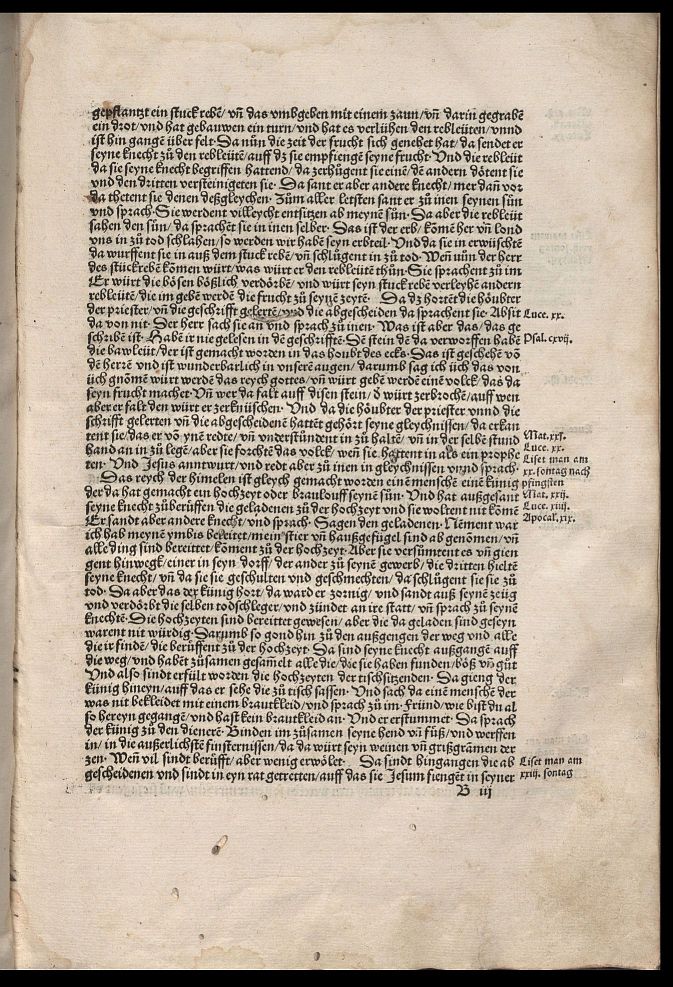 gepflantzt ein stuck rebē/ vn̄ das vmbgeben mit einem zaun/ vn̄ darin gegrabē
ein drot/ vnd hat gebauwen ein turn/ vnd hat es verlühen den rebleüten/ vnnd
ist hin gangē über felt· Da nůn die zeit der frucht sich genehet hat/ da sendet er
seyne knecht zů den rebleütē/ auff dz sie empfiengē seyne frucht· Vnd die rebleüt
da sie seyne knecht begriffen hattend/ da zerhůgent sie einē/ dē andern dötent sie
vnd den dritten versteinigeten sie· Da sant er aber andere knecht/ mer dan̄ vor
da thetent sie denen deßgleychen· Zům aller letsten sant er zů inen seynen sůn
vnd sprach· Sie werdent villeycht entsitzen ab meynē sůn· Da aber die rebleüt
sahen den sůn/ da sprachēt sie in inen selber· Das ist der erb/ kōmē her vn̄ lond
vns in zů tod schlahen/ so werden wir habē seyn erbteil· Vnd da sie in erwüschtē
da wurffent sie in auß dem stuck rebē/ vn̄ schlůgent in zů tod· Wen̄ nůn der herr
des stückrebē kōmen würt/ was würt er den rebleütē thůn· Sie sprachent zů im
Er würt die bösen bößlich verdörbē/ vnd würt seyn stuck rebē verleyhē andern
rebleütē/ die im gebē werdē die frucht zů seynē zeytē· Da dz hortēt die höubter
der priester/ vn̄ die geschrifft gelertē/ vnd die abgescheiden da sprachent sie· Absit
Luce. xx.
da von nit· Der herr sach sie an vnd sprach zů inen· Was ist aber das/ das ge
schribē ist· Habē ir nie gelesen in dē geschrifftē· Dē stein dē da verworffen habē
Psal. cxvij.
die bawleüt/ der ist gemacht worden in das houbt des ecks· Das ist geschehē vō
dē herrē vnd ist wunderbarlich in vnsern augen/ darumb sag ich üch das von
üch gnōmē würt werdē das reych gottes/ vn̄ würt gebē werdē einē volck/ das da
seyn frucht machet· Vn̄ wer da falt auff disen stein/ d̄ würt zerbrochē/ auff wen
aber er falt den würt er zerknüschen· Vnd da die höubter der priester vnnd die
schrifft gelerten vn̄ die abgescheidenē hattēt gehört seyne gleychnissen/ da erkan
tent sie/ das er vō ynē redte/ vn̄ vnderstůndent in zů haltē/ vn̄ in der selbē stund
Mat. xxi.
hand an in zů legē/ aber sie forchtē das volck/ wen̄ sie hattent in als ein prophe
Luce. xx.
ten· Vnd Jesus anntwurt/ vnd redt aber zů inen in gleychnissen vnnd sprach·
Liset man am
Das reych der himelen ist gleych gemacht worden einē menschē einē künig
xx. sontag nach
pfingsten
der da hat gemacht ein hochzeyt oder braulouff seynē sůn· Vnd hat außgesant
Mat. xxij.
seyne knecht zůberüffen die geladenen zů der hochzeyt vnd sie woltent nit kōmē
Luce. xiiij.
Er sandt aber andere knecht/ vnd sprach· Sagen den geladenen· Nēment war
Apocal. xix.
ich hab meynē ymbis bereitet/ mein stier vn̄ haußgefügel sind ab genōmen/ vn̄
alle ding sind bereittet/ kōment zů der hochzeyt· Aber sie versůmtent es vn̄ gien
gent hinwegk/ einer in seyn dorff/ der ander zů seynē gewerb/ die dritten hieltē
seyne knecht/ vn̄ da sie sie geschulten vnd geschmechten/ da schlůgent sie sie zů
tod· Da aber das der künig hort/ da ward er zornig/ vnd sandt auß seynē zeüg
vnd verdörbt die selben todschleger/ vnd zündet an ire statt/ vn̄ sprach zů seynē
knechtē· Die hochzeyten sind bereittet gewesen/ aber die da geladen sind geseyn
warent nit würdig· Darumb so gond hin zů den außgengen der weg vnd alle
die ir findē/ die berüffent zů der hochzeyt· Da sind seyne knecht außgangē auff
die weg/ vnd habēt zůsamen gesam̄elt alle die/ die sie haben funden/ böß vn̄ gůt
Vnd also sindt erfült worden die hochzeyten der tischsitzenden· Da gieng der
künig hineyn/ auff das er sehe die zů tisch sassen· Vnd sach da einē menschē der
was nit bekleidet mit einem brautkleid/ vnd sprach zů im· Fründ/ wie bist du al
so hereyn gegangē/ vnd hast kein brautkleid an· Vnd er erstummet· Da sprach
der künig zů den dienerē· Binden im zůsamen seyne hend vn̄ füß/ vnd werffen
in/ in die außerlichstē finsternissen/ da da würt seyn weinen vn̄ grißgramen der
zen· Wen̄ vil sindt berüfft/ aber wenig erwölet· Da sindt hingangen die ab
Liset man am
gescheidenen vnd sindt in eyn rat getretten/ auff das sie Jesum fiengēt in seyner
xxiij. sontag
B iij